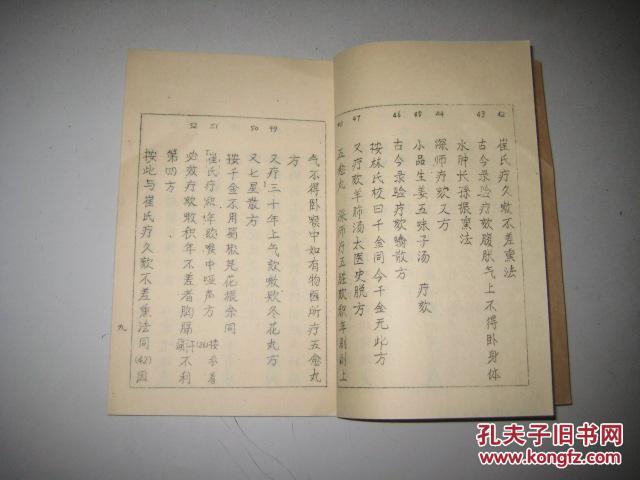 42 崔氏疗久嗽不差熏法
43 古今录验疗欬腹胀气上不得卧身体
水肿长孙振熏法
44 深师疗欬又方
45 小品生姜五味子汤 疗欬
46 古今录验疗欬嗽散方
按林氏校曰千金同今千金无此方
47 又疗欬羊肺汤太医史脱方
48 五愈丸 张师疗五脏欬积年剧则上
气不得卧喉中如有物医所疗五愈丸
方
49 又疗三十年上气欬嗽欵冬花丸方
50 又七星散方
按千金不用蜀椒芫花根余同
51 崔氏疗积年欬喉中哑声方 (26)按参看
52 必效疗欬嗽积年不差者胸膈干痛不利
第四方
按此与崔氏疗久欬不差熏法同(42)因
九
孔夫子旧书网
www.kongfz.com